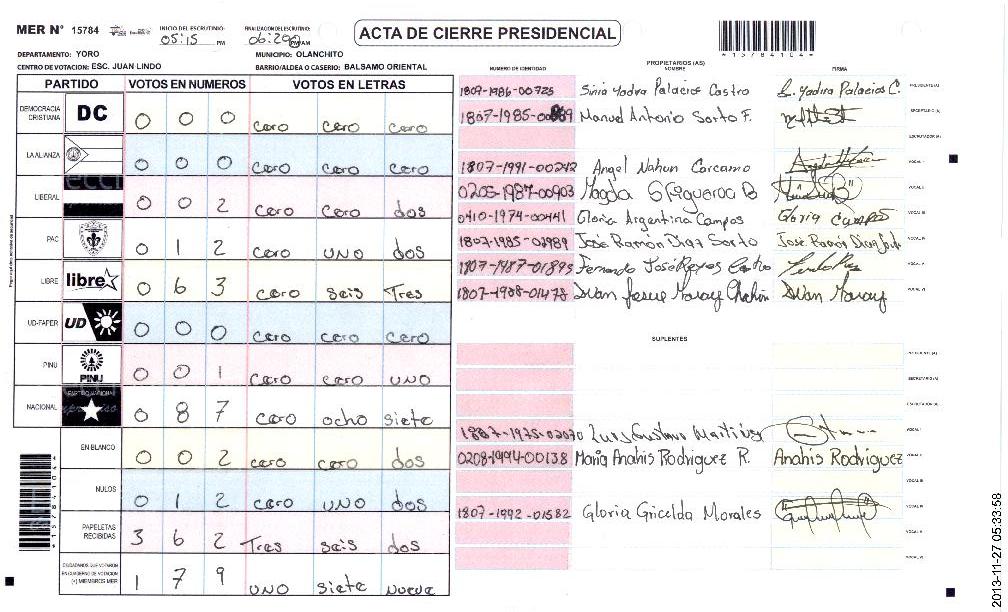 MER Nº 15784
INICIO DEL ESCRUTINIO: 05:15 PM
FINALIZACION DEL ESCRUTINIO: 06:20 PM AM
ACTA DE CIERRE PRESIDENCIAL
*15784104*
DEPARTAMENTO: YORO
MUNICIPIO: OLANCHITO
CENTRO DE VOTACION: ESC. JUAN LINDO
BARRIO/ALDEA O CASERIO: BALSAMO ORIENTAL
PARTIDO VOTOS EN NUMEROS VOTOS EN LETRAS
DEMOCRACIA CRISTIANA DC 0 0 0 cero cero cero
LA ALIANZA 0 0 0 cero cero cero
LIBERAL 0 0 2 cero cero dos
PAC 0 1 2 cero uno dos
LIBRE libre 0 6 3 cero seis Tres
UD-FAPER UD 0 0 0 cero cero cero
PINU PINU 0 0 1 cero cero uno
NACIONAL 0 8 7 cero ocho siete
EN BLANCO 0 0 2 cero cero dos
NULOS 0 1 2 cero uno dos
PAPELETAS RECIBIDAS 3 6 2 Tres seis dos
CIUDADANOS QUE VOTARON EN CUADERNO DE VOTACION (+) MIEMBROS MER 1 7 9 uno siete nueve
PROPIETARIOS (AS)
NUMERO DE IDENTIDAD NOMBRE FIRMA
1807-1986-00725 Yadira Palacios Castro S. Yadira Palacios C. PRESIDENTE (A)
1807-1985- Manuel Antonio Sorto F. SECRETARIO (A)
ESCRUTADOR (A)
1807-1991-00242 Angel Nahun Carcamo VOCAL I
0205-1987-00903 Magda G Figueroa B VOCAL II
0410-1974-00441 Gloria Argentina Campos Gloria Campos VOCAL III
1807-1985-02989 José Ramón Diaz Sorto José Ramón Diaz VOCAL IV
1807-1987-01895 Fernando José Reyes Castro VOCAL V
1807-1988-01478 VOCAL VI
SUPLENTES
PRESIDENTE (A)
SECRETARIO (A)
ESCRUTADOR (A)
1807-1975-02070 Luis Gustavo Martinez VOCAL I
0208-1994-00138 Maria Anahis Rodriguez R. Anahis Rodriguez VOCAL II
VOCAL III
1807-1992-01582 Gloria Gricelda Morales VOCAL IV
VOCAL V
VOCAL VI
*15784104*
2013-11-27 05:33:58